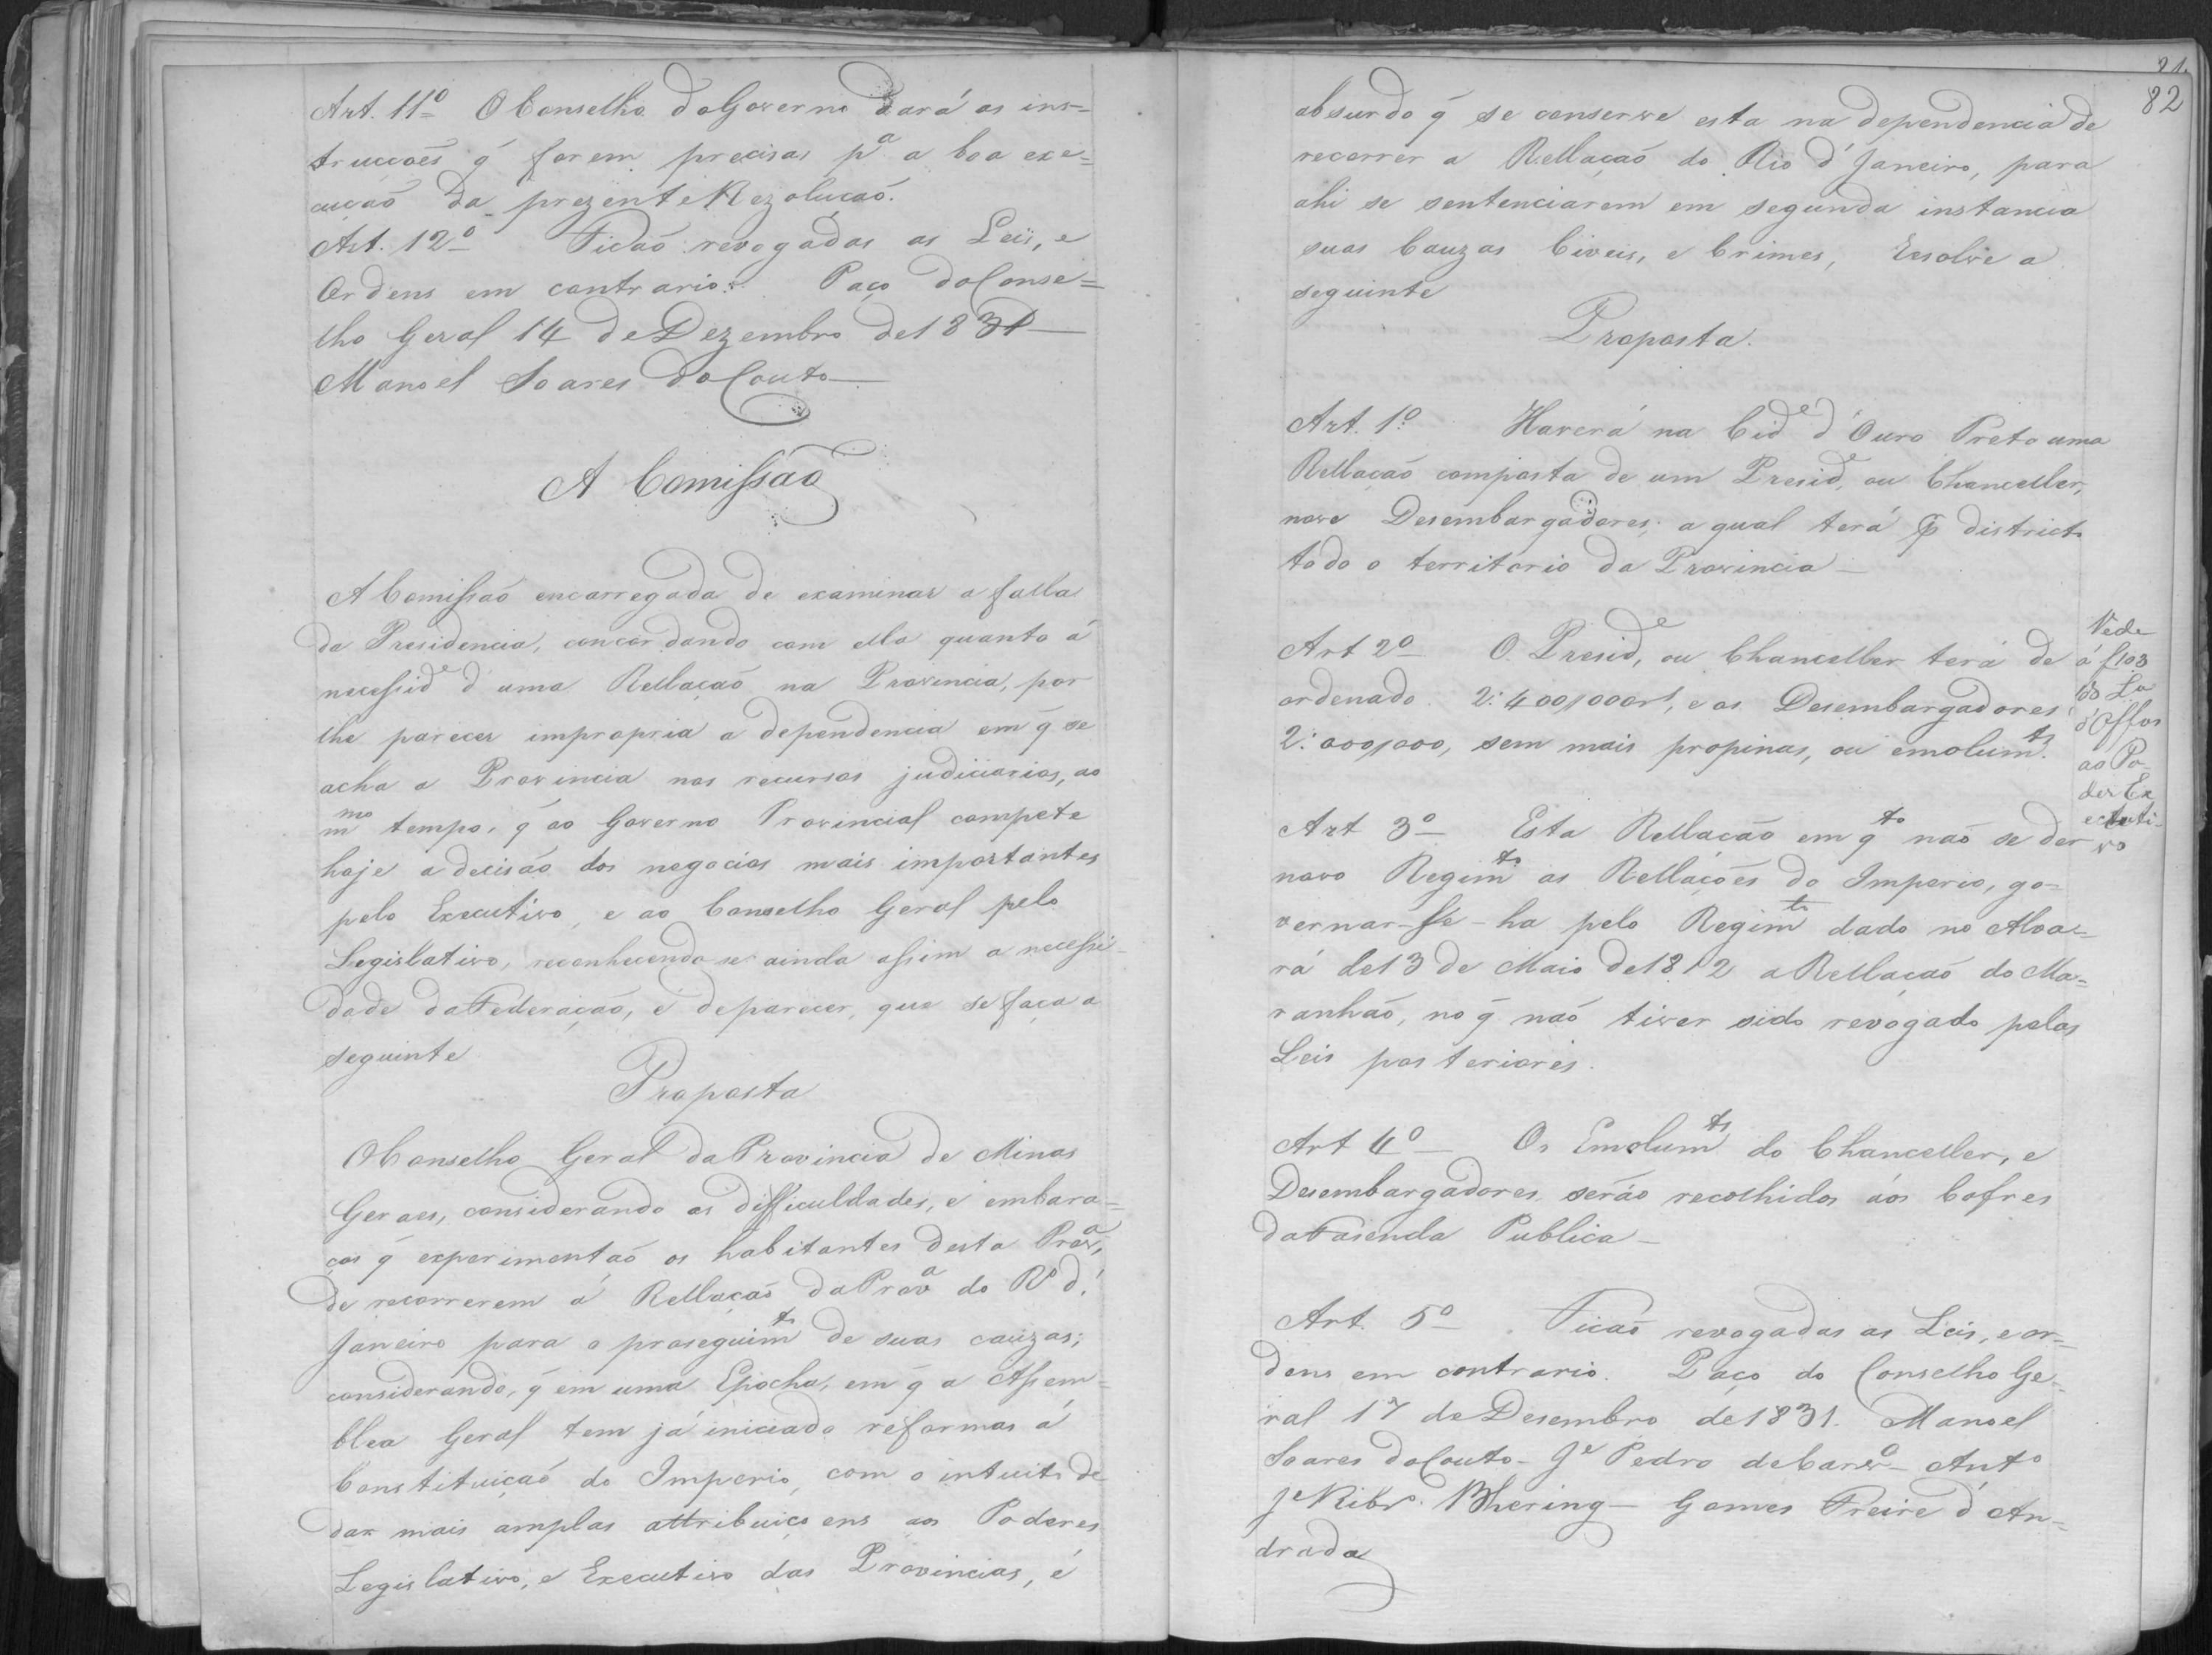 Art. 11º O Conselho do Governo dará as ins=
trucções q̃ forem precisas pª a boa exe=
cução da prezente Rezolução.
Art. 12º Ficão revogadas as Leis, e
Ordens em contrario. Paço do Conse=
lho Geral 14 de Dezembro de 1831—
Manoel Soares do Couto—
A Comissão
A Comissão encarregada de examinar a falla
da Presidencia, concordando com ella quanto á
necessidᵉ d'uma Rellação na Provincia, por
lhe parecer impropria a dependencia em q̃ se
acha a Provincia nos recursos judiciarios, ao
mᵐᵒ tempo, q̃ ao Governo Provincial compete
hoje a decisão dos negocios mais importantes
pelo Executivo, e ao Conselho Geral pelo
Legislativo, reconhecendo se ainda assim a necessi-
dade da Federação, é de parecer, que se faça a
seguinte
Proposta
O Conselho Geral da Provincia de Minas
Geraes, considerando as difficuldades, e embara=
ços q̃ experimentão os habitantes desta Provª,
de recorrerem á Rellação da Provª do Rº d'
Janeiro para o proseguimᵗᵒ de suas cauzas;
considerando, q̃ em uma Epocha, em q̃ a Assem=
blea Geral tem já iniciado reformas á
Constituição do Imperio, com o intuito de
dar mais amplas attribuiçoens aos Poderes
Legislativo, e Executivo das Provincias, é
82
absurdo q̃ se conserve esta na dependencia de
recorrer a Rellação do Rio d'Janeiro, para
ahi se sentenciarem em segunda instancia
suas Cauzas Civeis, e Crimes, Resolve a
seguinte
Proposta.
Art. 1º Haverá na Cidᵉ d'Ouro Preto uma
Rellação composta de um Presidᵉ, ou Chanceller,
nove Desembargadores; a qual terá p districto
todo o territorio da Provincia—
Art 2º O Presidᵉ, ou Chanceller terá de
ordenado 2:400,000rs, e os Desembargadores
2:000,000, sem mais propinas, ou emolumᵗˢ.
Vede
á f103
do Lº
d'Offos
ao Po-
der Ex
ecuti-
vo
Art 3º Esta Rellacão em qᵗᵒ não se der
novo Regimᵗᵒ as Rellações do Imperio, go=
vernar-se-ha pelo Regimᵗᵒ dado no Alva=
rá de 13 de Maio de 1812 a Rellação do Ma=
ranhão, no q̃ não tiver sido revogado pelas
Leis posteriores.
Art 4º— Os Emolumᵗˢ do Chanceller, e
Desembargadores serão recolhidos aos Cofres
da Fasenda Publica—
Art. 5º Ficão revogadas as Leis, e or=
dens em contrario. Paço do Conselho Ge=
ral 17 de Desembro de 1831. Manoel
Soares do Couto— Jᵉ Pedro de Carvº— Antº
Jᵉ Ribrº Bhering— Gomes Freire d'An=
drada